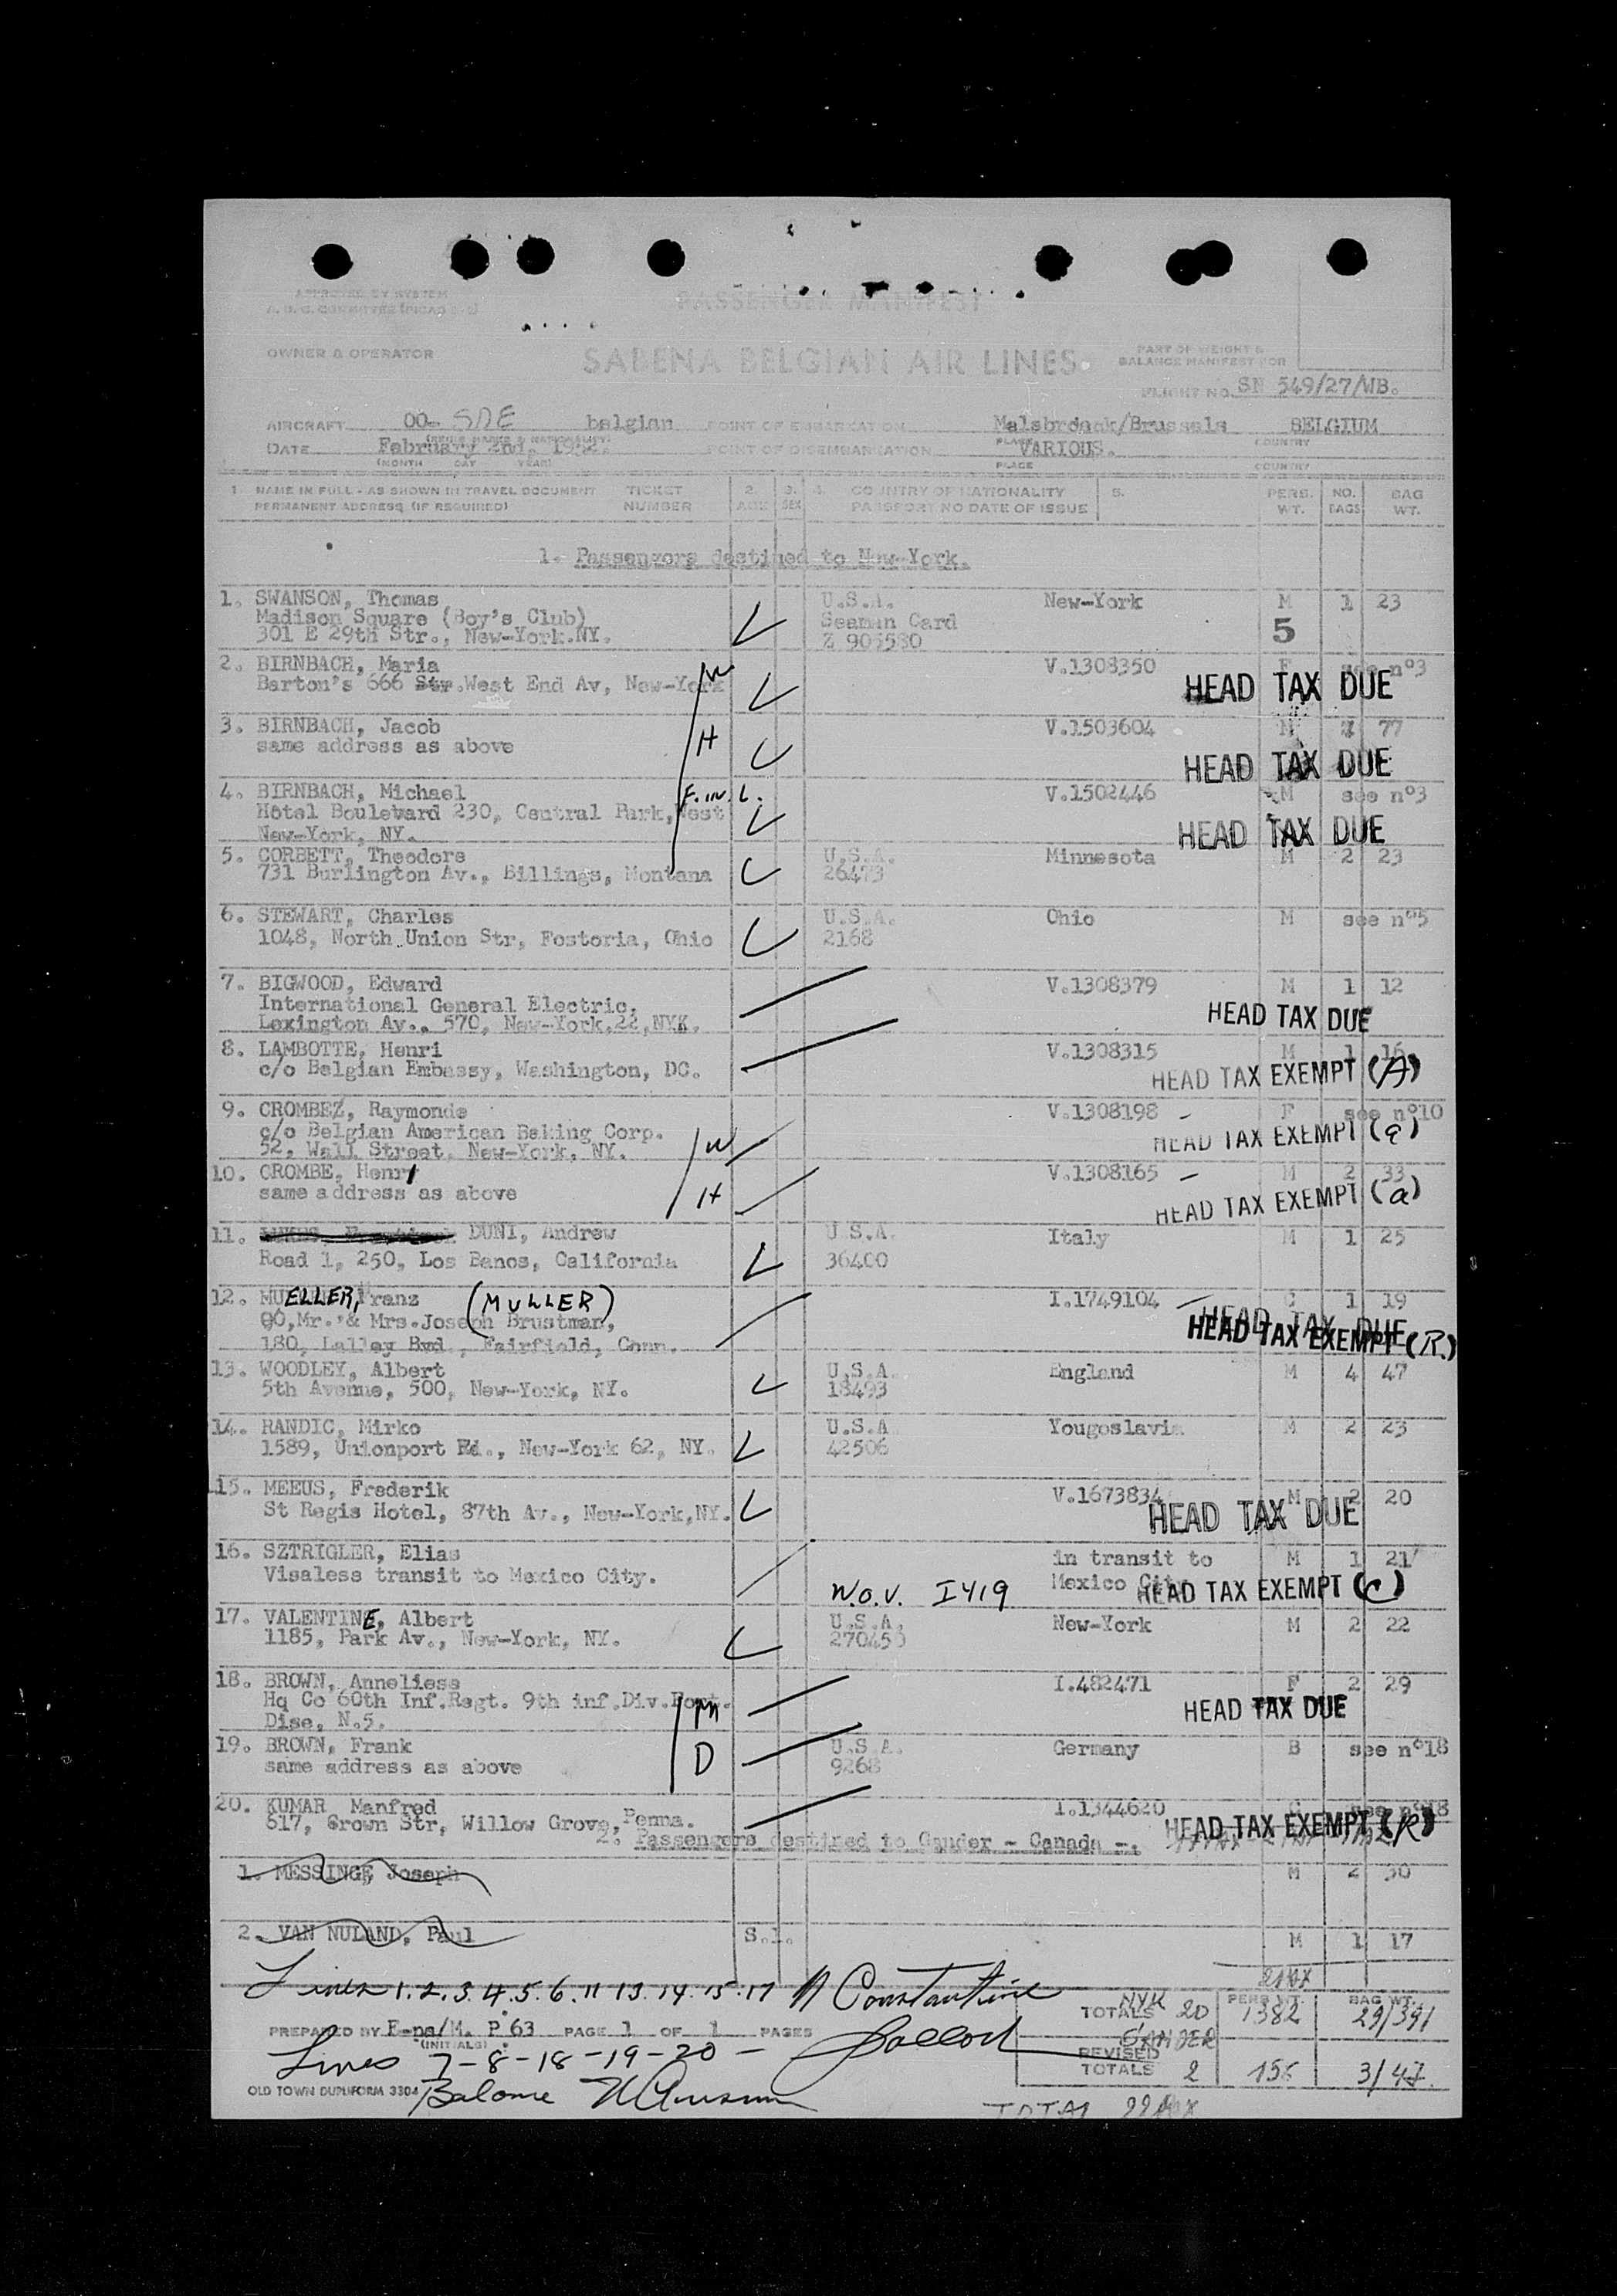 APPROVED BY SYSTEM
PASSENGER MANIFEST
OWNER & OPERATOR
SABENA BELGIAN AIR LINES
PART OF WEIGHT &
BALANCE MANIFEST FOR
FLIGHT NO. SN 549/27/WB.
AIRCRAFT 00- belgian POINT OF EMBARKATION Malsbroeck/Brussels BELGIUM
PLACE COUNTRY
DATE February 2nd, 1952. POINT OF DISEMBARKATION VARIOUS.
(MONTH DAY YEAR) PLACE COUNTRY
1. NAME IN FULL - AS SHOWN IN TRAVEL DOCUMENT TICKET 2. 3. 4. COUNTRY OF NATIONALITY 5. PERS. NO. BAG
PERMANENT ADDRESS (IF REQUIRED) NUMBER AGE SEX PASSPORT NO DATE OF ISSUE WT. BAGS WT.
1- Passengers destined to New-York.
1. SWANSON, Thomas U.S.A. New-York M 1 23
Madison Square (Boy's Club) Seaman Card 5
301 E 29th Str., New-York.NY. Z 905580
2. BIRNBACH, Maria W V.1308350 F see n°3
Barton's 666 Str.West End Av, New-York HEAD TAX DUE
3. BIRNBACH, Jacob V.1503604 M 77
same address as above H HEAD TAX DUE
4. BIRNBACH, Michael F. in. L. V.1502446 M see n°3
Hôtel Boulevard 230, Central Park,West HEAD TAX DUE
New-York, NY.
5. CORBETT, Theodore U.S.A. Minnesota M 2 23
731 Burlington Av., Billings, Montana 26473
6. STEWART, Charles U.S.A. Ohio M see n°5
1048, North Union Str, Fostoria, Ohio 2168
7. BIGWOOD, Edward V.1308379 M 1 12
International General Electric, HEAD TAX DUE
Lexington Av., 570, New-York,22,NYK.
8. LAMBOTTE, Henri V.1308315 M 1 16
c/o Belgian Embassy, Washington, DC. HEAD TAX EXEMPT (A)
9. CROMBEZ, Raymonde V.1308198 - F see n°10
c/o Belgian American Baking Corp. HEAD TAX EXEMPT (a)
52, Wall Street, New-York, NY. W
10. CROMBE, Henri V.1308165 - M 2 33
same address as above H HEAD TAX EXEMPT (a)
11. DUNI, Andrew U.S.A. Italy M 1 25
Road 1, 250, Los Banos, California 36400
12. MUELLER, Franz (MULLER) I.1749104 - C 1 19
90,Mr. & Mrs.Joseph Brustman, HEAD TAX DUE
HEAD TAX EXEMPT (R.)
180, Lalley Bvd., Fairfield, Conn.
13. WOODLEY, Albert U.S.A. England M 4 47
5th Avenue, 500, New-York, NY. 18493
14. RANDIC, Mirko U.S.A Yougoslavia M 2 23
1589, Unionport Rd., New-York 62, NY. 42506
15. MEEUS, Frederik V.1673834 M 2 20
St Regis Hotel, 87th Av., New-York,NY. HEAD TAX DUE
16. SZTRIGLER, Elias in transit to M 1 21
Visaless transit to Mexico City. W.O.V. I419 Mexico City HEAD TAX EXEMPT (C)
17. VALENTINE, Albert U.S.A. New-York M 2 22
1185, Park Av., New-York, NY. 270450
18. BROWN, Anneliese I.482471 F 2 29
Hq Co 60th Inf.Regt. 9th inf.Div.Fort. M HEAD TAX DUE
Dise, N.5.
19. BROWN, Frank U.S.A. Germany B see n°18
same address as above D 9268
20. KUMAR, Manfred I.1344620 C see n°18
617, Crown Str, Willow Grove, Penna. HEAD TAX EXEMPT (R)
2. Passengers destined to Gander - Canada -.
1. MESSINGE, Joseph M 2 30
2. VAN NULAND, Paul S.l. M 1 17
Lines 1. 2. 3. 4. 5. 6. 11 13. 14. 15. 17 Constantine
NYK PERS WT. BAG WT.
TOTALS 20 1382 29/391
PREPARED BY E-na/M. P 63 PAGE 1 OF 1 PAGES
(INITIALS)
GANDER
REVISED
TOTALS 2 156 3/47.
Lines 7-8-18-19-20-
OLD TOWN DUPLIFORM 3304 Balance
TOTAL